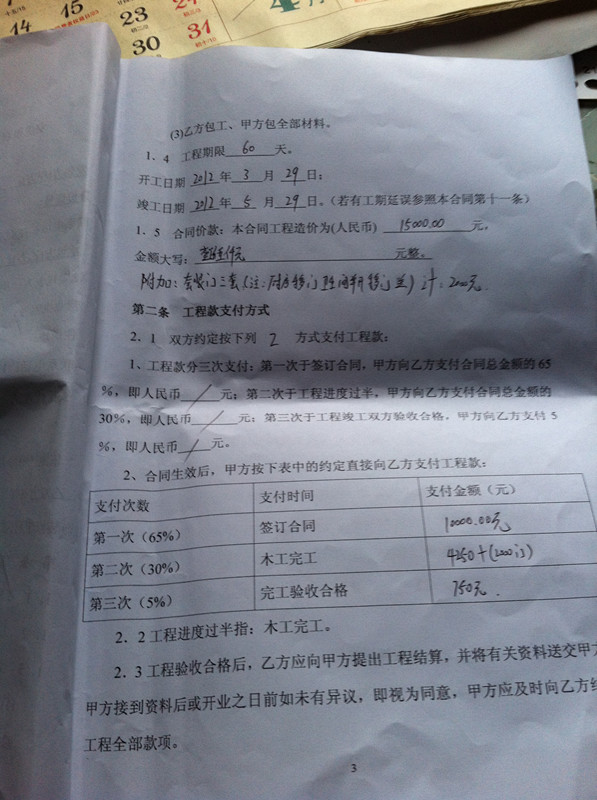 14 15 23 24 4月
30 31
(3)乙方包工、甲方包全部材料。
1.4 工程期限 60 天。
开工日期 2012 年 3 月 29 日;
竣工日期 2012 年 5 月 29 日。(若有工期延误参照本合同第十一条)
1.5 合同价款:本合同工程造价为(人民币) 15000.00 元,
金额大写: 元整。
附加:套装门三套(注:厨房移门 移门 ) 计:2000元.
第二条 工程款支付方式
2.1 双方约定按下列 2 方式支付工程款:
1、工程款分三次支付:第一次于签订合同,甲方向乙方支付合同总金额的65
%,即人民币 / 元;第二次于工程进度过半,甲方向乙方支付合同总金额的
30%,即人民币 / 元;第三次于工程竣工双方验收合格,甲方向乙方支付5
%,即人民币 / 元。
2、合同生效后,甲方按下表中的约定直接向乙方支付工程款:
支付次数 支付时间 支付金额(元)
第一次(65%) 签订合同 10000.00元
第二次(30%) 木工完工 4250+(2000门)
第三次(5%) 完工验收合格 750元.
2.2工程进度过半指:木工完工。
2.3工程验收合格后,乙方应向甲方提出工程结算,并将有关资料送交甲方
甲方接到资料后或开业之日前如未有异议,即视为同意,甲方应及时向乙方
工程全部款项。
3